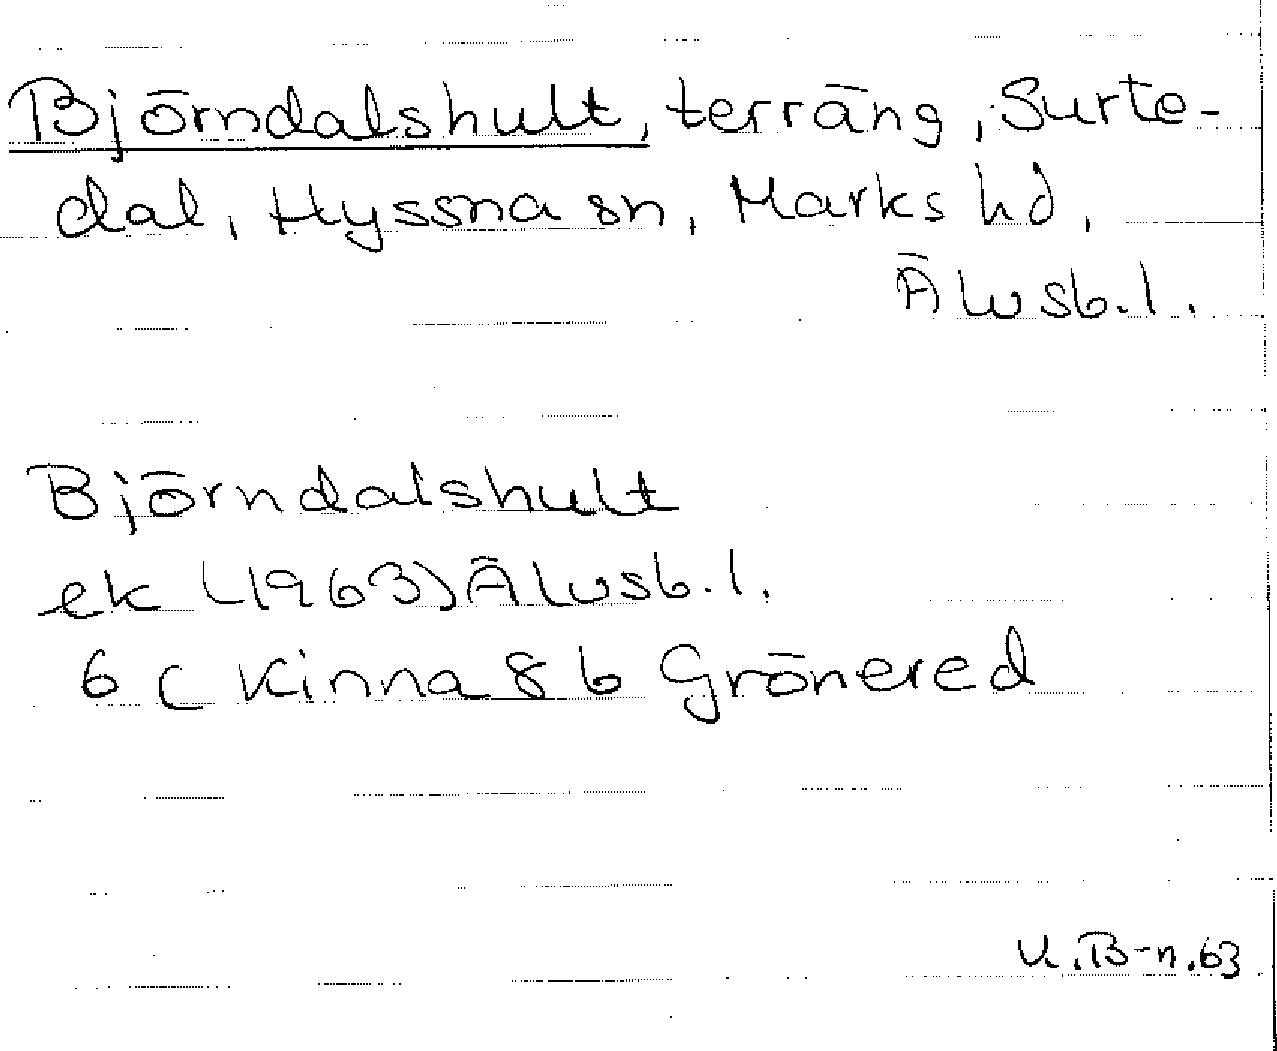 Björndalshult, terräng, Surte-
dal, Hyssna sn, Marks hd,
Älvsb.l.
Björndalshult
ek (1963) Älvsb.l.
6 C Kinna 8 b Grönered
V.B-n.63